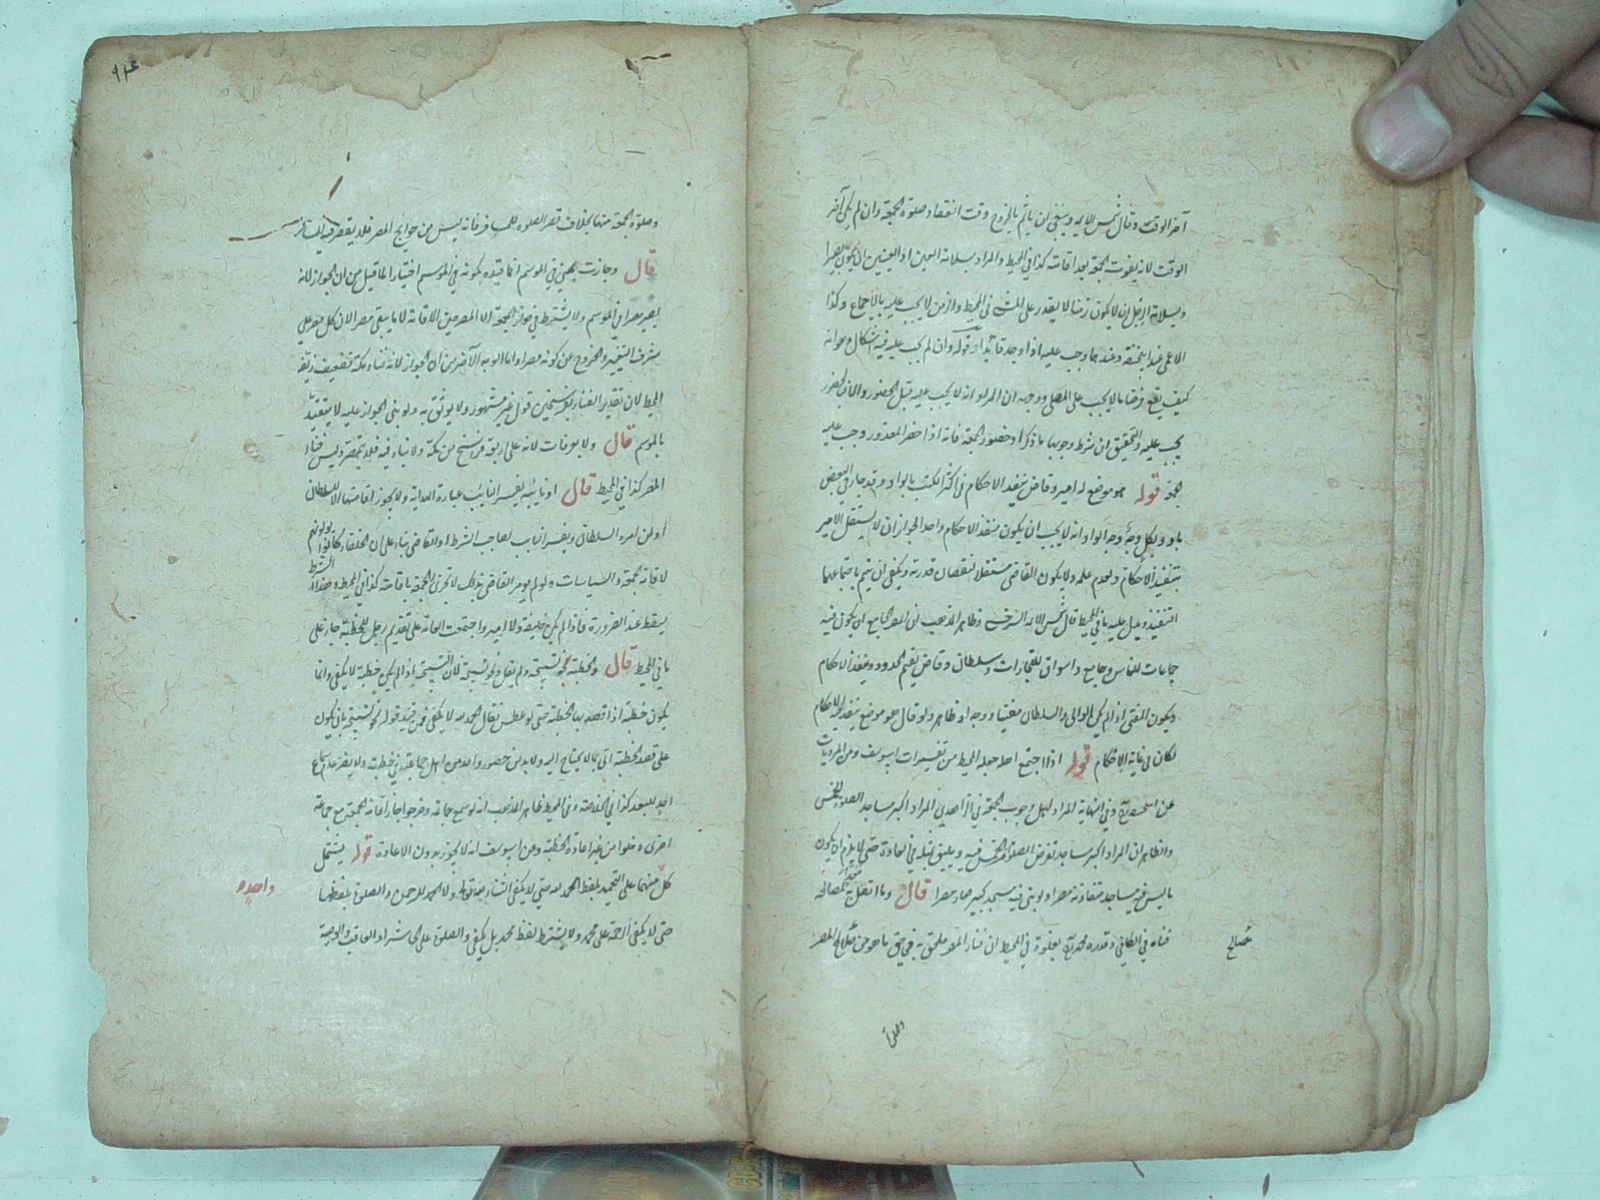 آخر الوقت وقال شمس الايمه وينبغي ان ياثم بالخروج وقت انقضاء صلوة الجمعة وان لم يكن آخر
الوقت لانه يفوت الجمعة بعد اقامته كذا في المحيط والمراد بسلامة العين او العينين ان يكون بصيرا
وبسلامة الرجل ان لا يكون زمنا لا يقدر على المشي في المحيط والزمن لا يجب عليه بالاجماع وكذا
الاعمى عند ابيحنيفة وعندهما وجب عليه اذا وجد قائدا قوله وان لم يجب عليه فيه اشكال هو انه
كيف يقع فرضا ما لا يجب على المصلي ووجهه ان المراد انه لا يجب عليه قبل الحضور والآن الحضور
يجب عليه والتحقيق ان شرط وجوبها ما ذكر او حضور الجمعة فانه اذا حضر المعذور وجب عليه
الجمعة قوله هو موضع له امير وقاض ينفذ الاحكام في اكثر الكتب بالواو وقد جاء في البعض
باو ولكل وجه وجه الواو انه لا يجب ان يكون منفذ الاحكام واحدا لجواز ان لا يستقل الامير
بتنفيذ الاحكام لعدم علمه ولا يكون القاضي مستقلا لنقصان قدرته ويكفي ان يتم باجتماعهما
التنفيذ ويدل عليه ما في المحيط قال شمس الايمه السرخسي وظاهر المذهب ان المصر الجامع ان يكون فيه
جماعات للناس وجامع واسواق للتجارات وسلطان وقاض يقيم الحدود وينفذ الاحكام
ويكون المفتي اذا لم يكن الوالي والسلطان مفتيا ووجه او ظاهر ولو قال هو موضع ينفذ فيه الاحكام
لكان في غاية الاحكام قوله اذا اجتمع اهله جعله المحيط من تفسيرات ابيوسف ومن المرويات
عن وفي النهاية المراد اهل وجوب الجمعة في المراد اكبر مساجد الصلوة الخمس
والظاهر ان المراد اكبر مساجد تفرض الصلوة الخمس فيه ويليق بمثله في العادة حتى لا يلزم ان يكون
ما ليس فيه مساجد متفاوتة مصرا ولو بني فيه مسجد كبير صار مصرا قال وما اتصل به لمصالحه
فناه في الكافي وقدره محمد بغلوة في المحيط ان فناء المصر ملحق به في حق ما هو من مصالح المصر
مصالح
وصلوة
٩٤
وصلوة الجمعة منها بخلاف قصر الصلوة للمسافر فانه ليس من حوائج المصر فلا يقصر فيه المسافر
قال وجازت بمنى في الموسم انما قيده بكونه في الموسم اختيارا لما قيل من ان الجواز لانه
يصير مصرا في الموسم ولا يشترط في جواز الجمعة الا المصر حين الاقامة لا ما يبقى مصرا لان كل مصر على
شرف التغيير والخروج عن كونه مصرا واما الوجه الآخر من ان الجواز لانه فناء مكة فضعيف زيفه
المحيط لان تقدير الفناء بفرسخين قول غير مشهور ولا يوثق به ولو بني الجواز عليه لا يتقيد
بالموسم قال ولا بعرفات لانه على اربعة فراسخ من مكة ولا بناء فيه فلا يتمصر وليس فناء
المصر كذا في المحيط قال او نايبه يفسر النايب عبارة الهداية ولا يجوز اقامتها الا للسلطان
او لمن امره السلطان ويفسر النايب لصاحب الشرط او القاضي بناء على ان الخلفاء كانوا يولونهم
لاقامة الجمعة والسياسات ولو لم يؤمر القاضي بذلك لا تجزي الجمعة باقامته كذا في المحيط وهذا الشرط
يسقط عند الضرورة فاذا لم يكن خليفة ولا امير واجتمعت العامة على تقديم رجل للخطبة جاز على
ما في المحيط قال والخطبة نحو تسبيحة ولم تقل نحو تسبيحة لان التسبيحة اذا لم يكن خطبة لا يكفي وانما
يكون خطبة اذا قصد بها الخطبة حتى لو عطس فقال الحمد لله لا يكفي فمن قيد قوله نحو تسبيحة بان يكون
على قصد الخطبة اتى بما لا يحتاج اليه ولا بد من حضور واحد من اهل جماعة في خطبته ولا يضر عدم سماع
احد لبعد كذا في الخلاصة وفي المحيط ظاهر المذهب انه لو سمع جماعة وخرجوا جاز اقامة الجمعة مع جماعة
اخرى دخلوا من غير اعادة الخطبة وعن ابيوسف انه لا يجوز بدون الاعادة قوله يشتمل
كل منهما على التحميد بلفظ الحمد لله حتى لا يكفي الثناء ولا الحمد للرحمن والصلوة بلفظها
حتى لا يكفي الرحمة على محمد ولا يشترط لفظ محمد بل يكفي والصلوة على الحاشر او العاقب والوصية
واحده